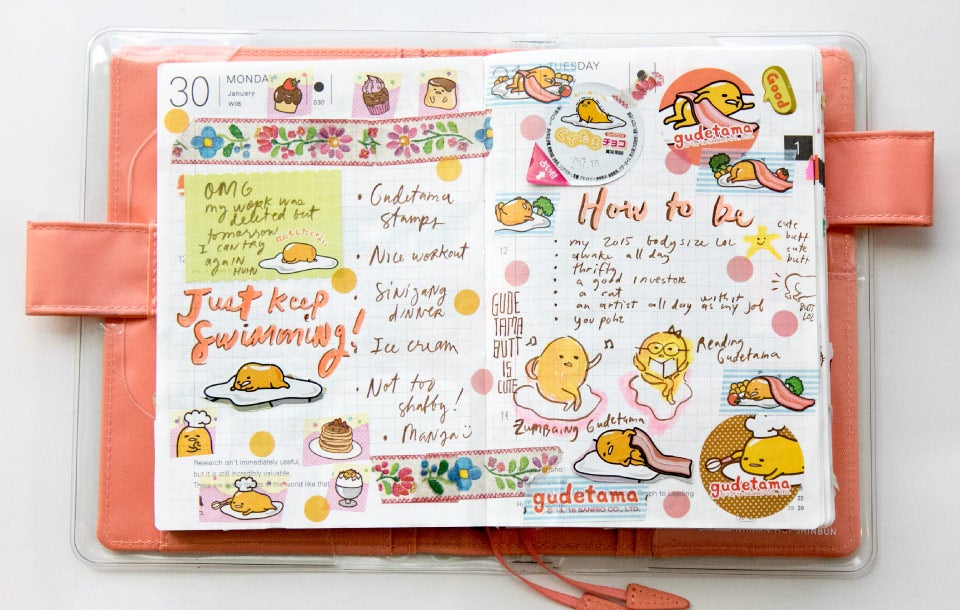 30
MONDAY
January
W05
030
OMG
my work was
deleted but
tomorrow
I can try
again HUHU
Just keep
Swimming!
• Gudetama
stamps
• Nice workout
• Sinigang
dinner
• Ice cream
• Not too
shabby!
• Manga
12
Research isn't immediately useful,
but it is still incredibly valuable.
TUESDAY
チョコ
gudetama
Good
1
How to be
• my 2015 body size LOL
• awake all day
• thrifty
• a good investor
• a cat
• an artist all day with it as my job
• you po
cute
butt
cute
butt
BUTT
LOL
12
GUDE
TAMA
BUTT
IS
CUTE
Reading
Gudetama
14
Zumbaing Gudetama
gudetama
© 13, '16 SANRIO CO., LTD.
gudetama
22
28 29